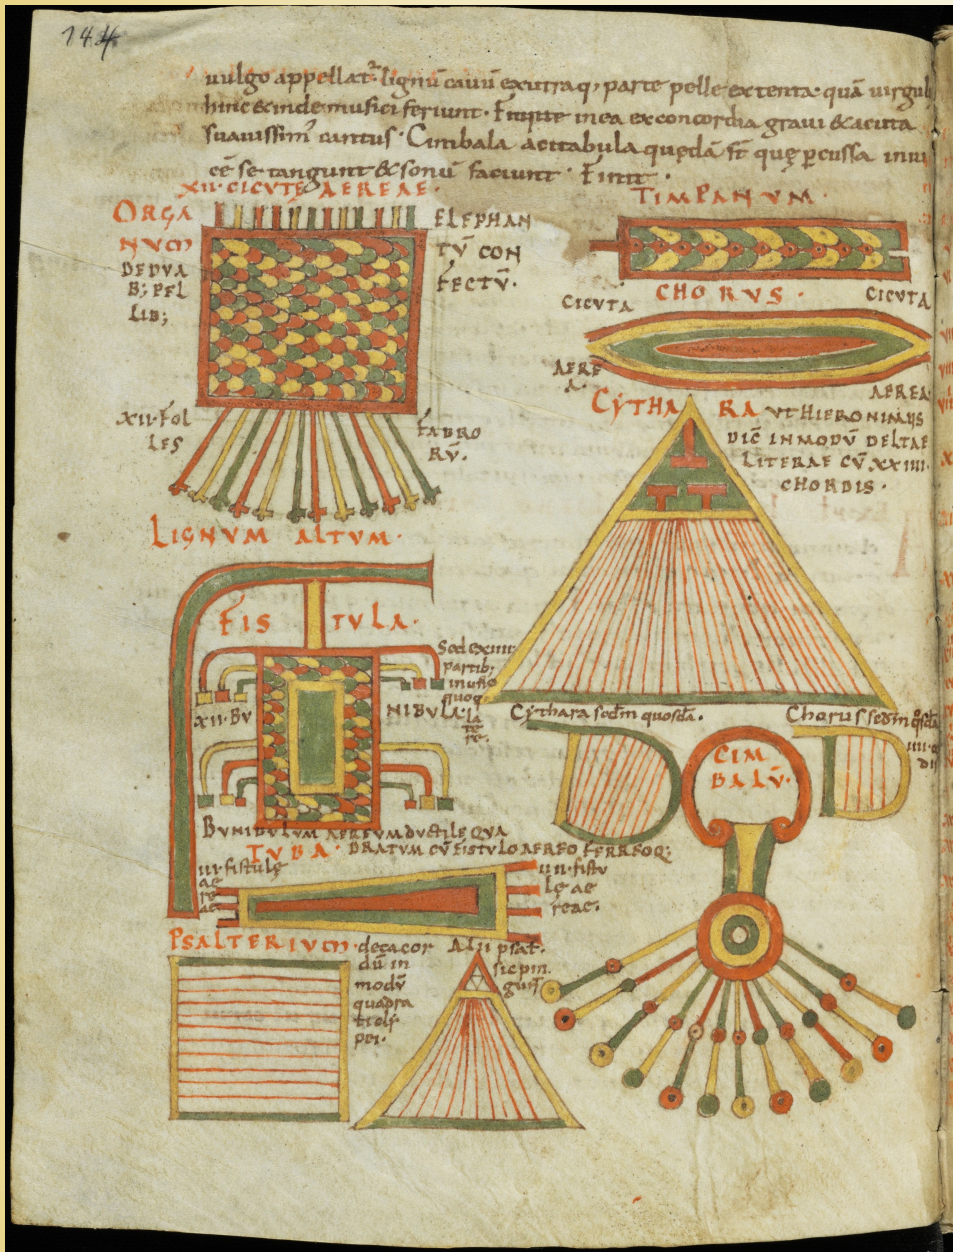 144
uulgo appellat̄ lignū cauū ex utraq; parte pelle extenta. quā uirgul
hinc & inde musici feriunt. Fitque in ea ex concordia graui & acuta
suauissim᾽ cantus. Cimbala acitabula quędā st̄ quę ꝑcussa inui
cē se tangunt & sonū faciunt. Finit.
XII. CICUTĘ AEREAE.
ORGA
NUM
DEDUA
B; PEL
LIB;
ELEPHAN
TŪ CON
FECTŪ.
XII. FOL
LES
FABRO
RŪ.
TIMPANUM.
CHORUS.
CICUTA
CICUTA
AERE
A.
AEREA
CYTHA RA UT HIERONIMUS
DIC̄ IN MODŪ DELTAE
LITERAE CŪ XXIIII.
CHORDIS.
LIGNUM ALTUM.
FIS TULA.
Sed ex IIII.
partib;
in use
quoq;
la
te
re.
XII. BU NIBULA.
BUNIBULUM AEREUM DUCTILE QUA
DRATUM CŪ FISTULO AEREO FERREOQ;
TUBA.
III. fistulę
ae
re
ae
IIII. fistu
lę ae
reae.
Cythara sedm̄ quosdā.
Chorus sedm̄ qosdā
IIII.
CIM
BALŪ.
PSALTERIUM. decacor
dū in
modū
quadra
ti cly
pei.
Alii psat̄.
sic pin
gun̄t